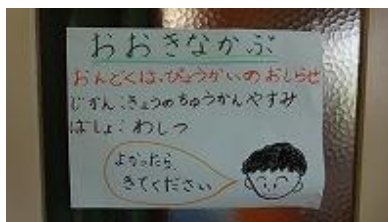 おおきなかぶ
おんどくはっぴょうかいのおしらせ
じかん：きょうのちゅうかんやすみ
ばしょ：わしつ
よかったら、
きてください